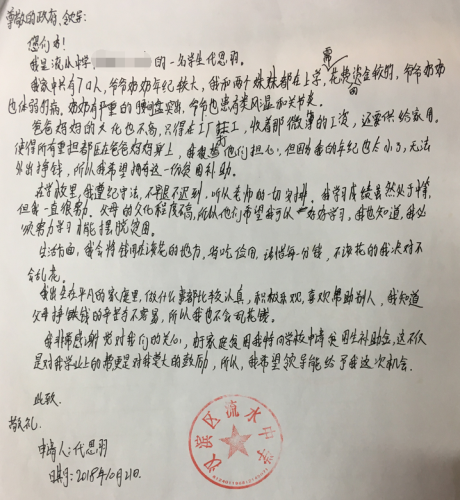 尊敬的政府、领导:
您们好!
我是流水中学 的一名学生代思羽。
我家中共有7口人,爷爷奶奶年纪较大,我和两个妹妹都在上学,需花费资金较多,爷爷奶奶
也体弱多病。奶奶有严重的腰间盘突出,爷爷也患有类风湿加关节炎。
爸爸妈妈的文化也不高,只得在工厂转工,收着那微薄的工资,还要供给家用。
使得所有重担都压在爸爸妈妈身上,我很想为他们担心,但因为我的年纪也太小了,无法
外出挣钱,所以我希望拥有这一份贫困补助。
在学校里,我遵纪守法,不早退不迟到,听从老师的一切安排。我学习成绩虽然处于中等,
但我一直很努力。父母的文化程度不高,所以他们希望我可以好好学习,我也知道,我必
须努力学习才能摆脱贫困。
生活方面,我会将钱用在该花的地方,省吃俭用,珍惜每一分钱,不该花的我决对不
会乱花。
我出生在平凡的家庭里,做什么事都比较认真,积极乐观,喜欢帮助别人,我知道
父母挣钱的辛苦与不容易,所以我也不会乱花钱。
我非常感谢党对我们的关心,由于家庭贫困我特向学校申请贫困生补助金,这不仅
是对我学业上的帮更是对我莫大的鼓励,所以,我希望领导能给予我这次机会。
此致
敬礼
申请人:代思羽
日期:2018年10月21日.
汉滨区流水中学